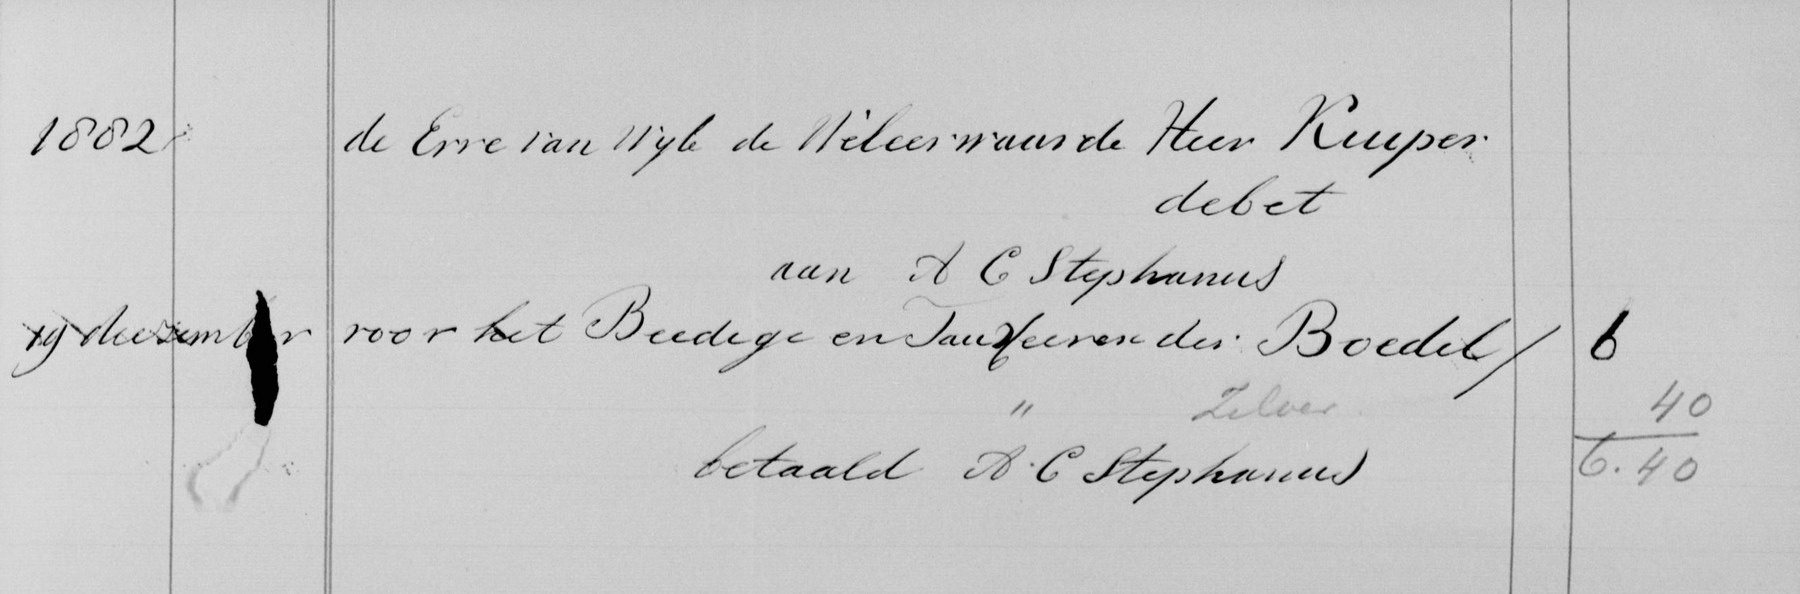 1882 de Erve van Wyle de Weleerwaarde Heer Kuyper
debet
aan A C Stephanus
19 deezember voor het Beedege en Tauxeeren der Boedel / 6
" Zilver 40
betaald A. C Stephanus 6.40